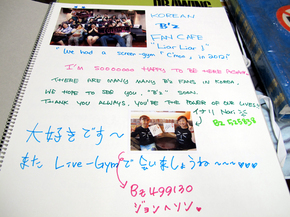 KOREAN
"B'z
FAN CAFE
"Liar Liar!"
"We had a screen-gym "Cinea, in 2012!
I'M SOOOOOOO HAPPY TO BE HERE
THERE ARE MANY MANY B'Z FANS IN KOREA.
WE HOPE TO SEE YOU, "B'z" SOON.
THANK YOU ALWAYS, YOU'RE THE POWER OF OUR LIVES!
Bz 525838
大好きです〜
また Live-Gymで会いましょうね〜〜♡♡♡
Bz 499130
ジョン ヘソン♥